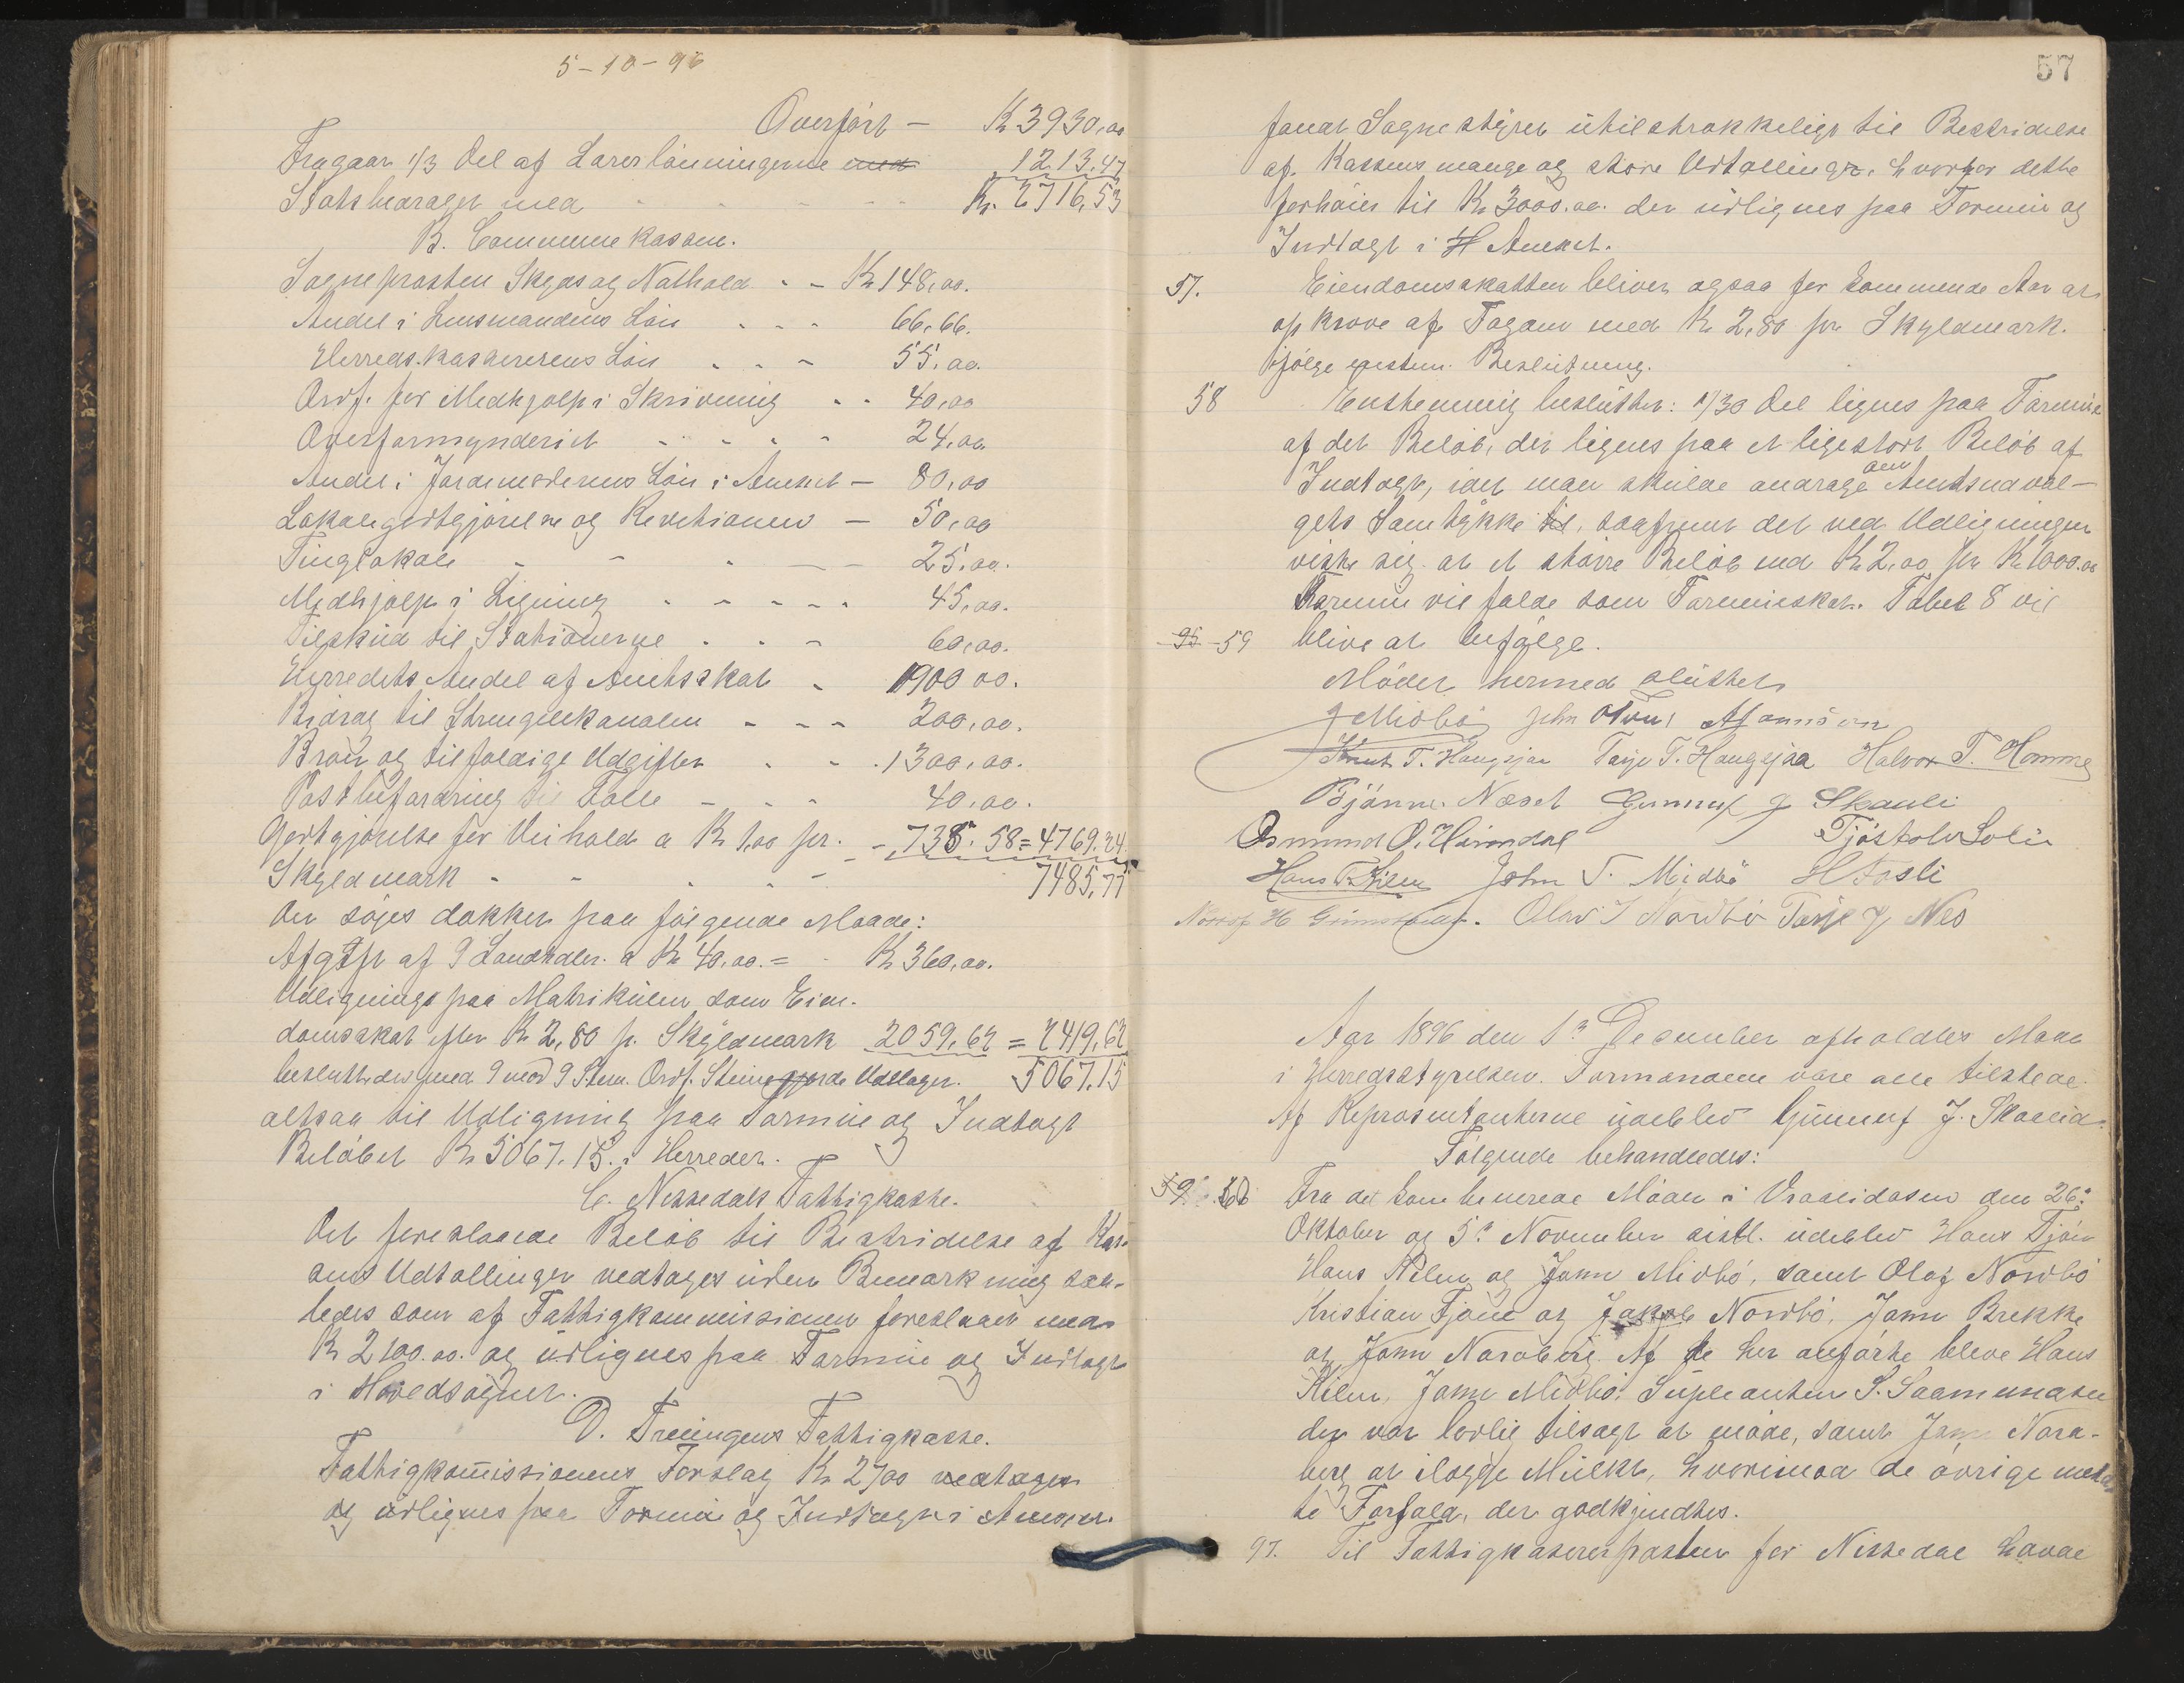 5-10-96
Overført - Kr 3930,00
Fragaar 1/3 Del af Lærerlönningerne med 1213,47
Statsbidraget med - - - - Kr. 2716,53
B. Communekassen.
Sogneprosten Skyds og Nathold - - Kr 148,00.
Andel i Lensmandens Lön - - - 66,66.
Herreds-kassererens Lön - - - 55,00.
Ordf. for Medhjælp i Skrivning - - 40,00
Overformynderiet - - - - 24,00
Andel i Jordemoderens Lön i Annexet - 80,00
Lokalegodtgjörelse og Revisionen - 50,00
Tinglokale - - - - 25,00.
Medhjælp i Ligning - - - - - 45,00.
Tilskud til Stationerne - - - 60,00.
Herredets Andel af Amtsskat - 1900 00.
Bidrag til Strengenkanalen - - - 200,00.
Broer og tilfældige Udgifter - - 1300,00.
Postbefordring til - - - 40,00.
Godtgjörelse for Veihold a Kr 1,00 pr. - 735.58 = 4769.24
Skyldmark - - - - - 7485,77
der söges dækket paa fölgende Maade:
Afgift af 9 Landhdlr. a Kr 40,00. = - Kr 360,00.
Udlignings paa Matrikülen som Eien-
domsskat efter Kr 2,80 pr. Skyldmark 2059,62 = 2419,62
besluttedes med 9 mod 9 Stem. Ordf. Stemme gjorde Udslaget. 5067,15
altsaa til Udligning paa Formue og Indtægt
Belöbet Kr 5067.15. i Herredet.
C. Nissedals Fattigkasse.
Det foreslaaede Belöb til Bestridelse af Kas-
sens Udtællinger vedtages uden Bemærkning saa-
ledes som af Fattigkommissionen foreslaaet med
Kr 2100.00. og üdlignes paa Formue og Indtægt
i Hovedsognet.
D. Treungens Fattigkasse.
Fattigkommissionens Forslag Kr 2700 vedtages
og üdlignes paa Formue og Indtægt i Annexet.
57
fandt Sognestyret ütilstrækkeligt til Bestridelse
af Kassens mange og store Udtællinger, hvorfor dette
forhöies til Kr 3000.00. der üdlignes paa Formue og
Indtægt i H Annexet.
57. Eiendomsskatten bliver ogsaa for kommende Aar at
opkræve af Fogden med Kr 2,80 pr Skyldmark.
ifölge Beslutning.
58 Enstemmig besluttet: 1/30 Del lignes paa Formue
af det Belöb, der lignes paa et ligestort Belöb af
Indtægt, idet man skulde andrage om Amtsudval-
gets Samtykke til, saafremt det ved Udligningen
viste sig at et större Belöb end Kr 2,00 pr Kr 1000.00
Formue vil falde som Formueskat. Tabel 8 vil
95 - 59 blive at befölge.
Mödet hermed slüttet
J Midbö John
Knut T. Haugsjaa Tarje T. Haugsjaa Halvor T. Homme
Bjönn. Næset Gunnuf J Skauli
Osmund O. Heimdal Tjöstolv Solli
Hans T. Kilen John T. Midbö H Fosli
H Olav J Nordbö Tarje J Nes
Aar 1896 den 1ste December afholdtes Möde
i Herredsstyrelsen. Formændene vare alle tilstede.
Af Repræsentanterne üdeblev Gunnuf J. Skaalid.
Fölgende behandledes:
59. 60 Fra det kombinerede Möde i Vraalidosen den 26de
Oktober og 5te November sistl. üdeblev Hans Tjön
Hans Kilen og Jonn Midbö, samt Olaf Nordbö
Kristian Tjöne og Jakob Nordbö, Jonn Brekke
og Jonn Naraberg. Af de her anförte bleve Hans
Kilen, Jonn Midbö. Supleanten S. Saamundsen
der var lovlig tilsagt at möde, samt Jonn Nara-
berg at ilægge Mülkt, hvorimod de övrige meld-
te Forfald, der godkjendtes.
97. Til Fattigkasserer posten for Nissedal havde